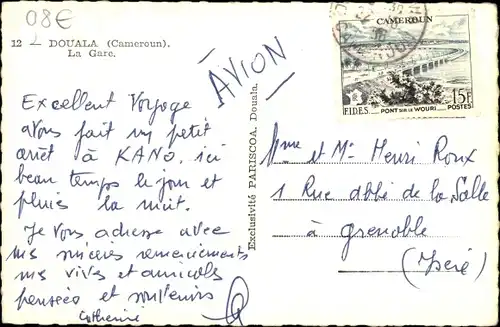 08€
12 DOUALA (Cameroun).
La Gare.
AVION
Excellent Voyage
avons fait un petit
arrêt à KANO, ici
beau temps le jour et
pluies la nuit.
Je vous adresse avec
mes sincères remerciements
mes vives et amicales
pensées et souvenirs
Catherine
Exclusivité PARISCOA, Douala.
CAMEROUN
15F
FIDES PONT SUR LE WOURI POSTES
Mme et Mr Henri Roux
1 Rue abbé de la Salle
à Grenoble
(Isère)